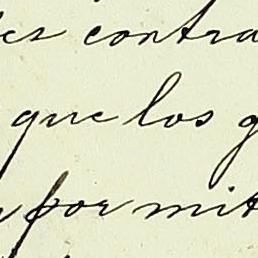 contra
que los g
por mit